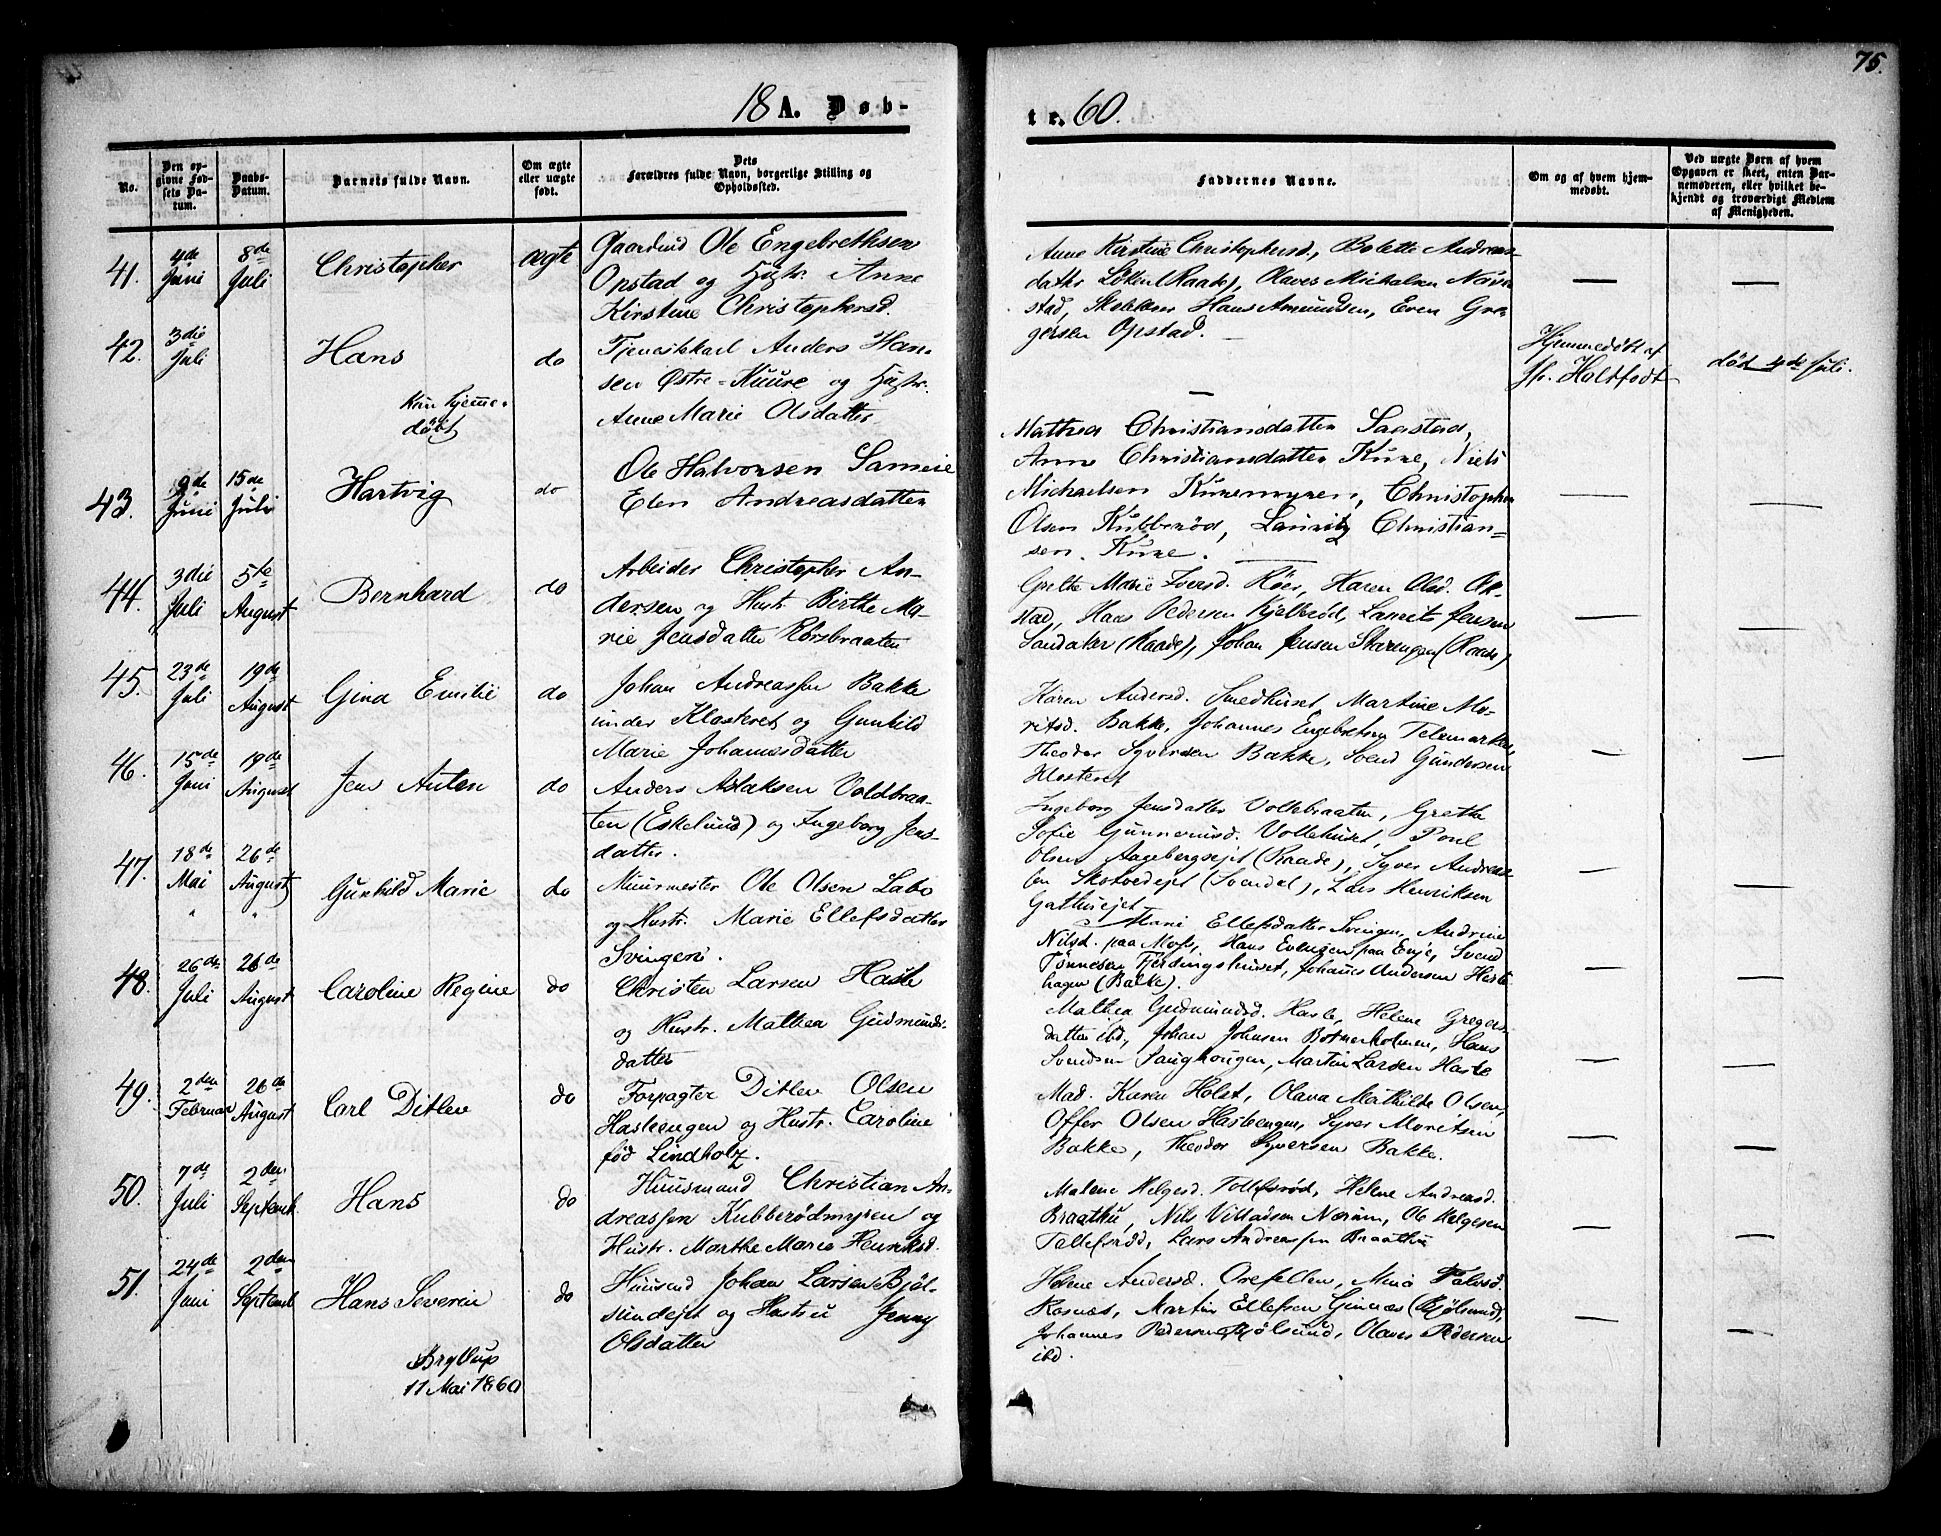 75.
18 A. Døb-
te. 60.
No.
Den op-
givne Fød-
sels Da-
tum.
Daabs-
Datum.
Barnets fulde Navn.
Om ægte
eller uægte
født.
Dets
Forældres fulde Navn, borgerlige Stilling og
Opholdssted.
Faddernes Navne.
Om og af hvem hjem-
medøbt.
Ved uægte Børn af hvem
Opgaven er skeet, enten Bar-
nemoderen, eller hvilket be-
kjendt og troværdigt Medlem
af Menigheden.
41.
4de
Juni
8de
Juli
Christopher
ægte
Gaardmd Ole Engebrethsen
Opstad og Hustr. Anne
Kirstine Christophersd.
Anne Kirstine Christophersd, Bolette Andreas-
datter Løken (Raade), Olaves Michalsen Navne-
stad, Skolelærer Hans Amundsen, Even Gre-
gersen Opstad.
42.
3die
Juli
Hans
Kun hjemme-
døbt
do
Tjenestekarl Anders Han-
sen Østre-Kuure og Hustr.
Anne Marie Olsdatter
Hjemmedøbt af
Holtfodt
død 4de Juli.
43.
9de
Juni
15de
Juli
Hartvig
do
Ole Halvorsen Sameie
Elen Andreasdatter
Mathea Christiansdatter Saastad,
Anne Christiansdatter Kure, Niels
Michaelsen Kuremyren, Christopher
Olsen Kubberød, Lauritz Christian-
sen. Kure.
44.
3die
Juli
5te
August
Bernhard
do
Arbeider Christopher An-
dersen og Hustr. Birthe Ma-
rie Jensdatter Rørsbraaten
Grethe Marie Iversd. Röer, Karen Olsd. Ok-
stad, Hans Pedersen Kjelbsrød, Laurits Jensen
Sandaker (Raade), Johan Jensen Starengen (Raade)
45.
23de
Juli
19de
August
Gina Emilie
do
Johan Andreassen Bakke
under Klosteret og Gunhild
Marie Johannesdatter
Karen Andersd. Smedhuset, Martine Mo-
ritsd. Bakke, Johannes Engebretsen Telemarken
Theodor Syversen Bakke, Svend Gundersen
Klosteret
46.
15de
Juni
19de
August
Jens Anton
do
Anders Aslaksen Voldbraa-
ten (Eskelund) og Ingeborg Jens-
datter.
Ingeborg Jensdatter Voldbraaten, Grethe
Sofie Gunnerusd. Vollehuset, Poul
Olsen Aagebergsejet (Raade), Syver Andreas-
sen Skotvedejet (Svendal), Lars Henriksen
Gathuejet
47.
18de
Mai
"
26de
August
"
Gunhild Marie
do
Muurmester Ole Olsen Labo
og Hustr. Marie Ellefsdatter
Svingen.
Marie Ellefsdatter Svingen, Andrine
Nilsd. paa Moss, Hans Evensen paa Enje, Svend
Tønnesen Fjerdingshuset, Johannes Andersen Heste-
hagen (Bakke).
48.
26de
Juli
26de
August
Caroline Regine
do
Christen Larsen Hasle
og Hustr. Mathea Gudmunds-
datter
Mathea Gudmundsd. Hasle, Helene Gregers-
datter ibd, Johan Johnsen Botnerholmen, Hans
Svendsen Saughougen, Martin Larsen Hasle
49.
2den
Februar
26de
August
Carl Ditlev
do
Forpagter Ditlev Olsen
Hasleengen og Hustr. Caroline
fød Lindholz.
Mad. Karen Holst, Olava Mathilde Olsen,
Offer Olsen Hasleengen, Syver Moritsen
Bakke, Theodor Syversen Bakke.
50.
7de
Juli
2den
Septemb
Hans
do
Huusmand Christian An-
dreassen Kubberødmyren og
Hustr. Marthe Marie Henriksd.
Malene Helgesd. Tollefsrød, Helene Andreasd.
Braathu, Nils Villadsen Nærum, Ole Helgesen
Tollefsrød, Lars Andreassen Braathu
51.
24de
Juni
2den
Septemb
Hans Severin
do
Huusmd Johan Larsen Bjøl-
sundejet og Hustru Jenny
Olsdatter
Bryllup
11 Mai 1860
Helene Andersd. Orefellen, Mina Talvsd.
Rosnæs, Martin Ellefsen Ginnæs (Bjølsund),
Johannes Pedersen Bjølsund, Olaves Pedersen
ibd.